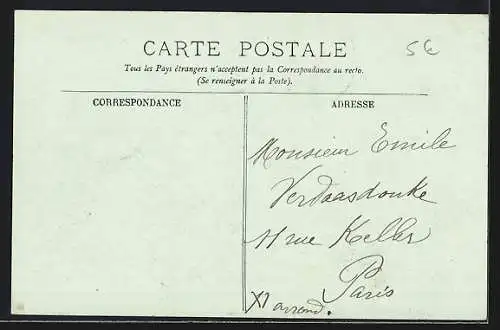 CARTE POSTALE
5€
Tous les Pays étrangers n'acceptent pas la Correspondance au recto.
(Se renseigner à la Poste).
CORRESPONDANCE
ADRESSE
Monsieur Emile
Verdaasdonke
11 rue Keller
Paris
XI arrond.